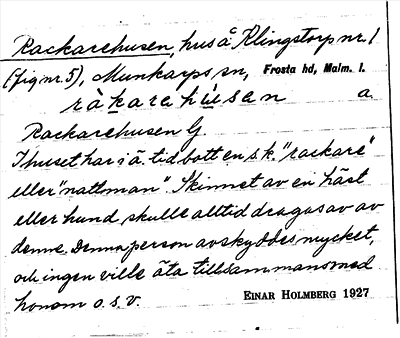 Rackarehusen, hus å Klingstorp nr. 1
(fig nr. 5), Munkarps sn, Frosta hd, Malm. l.
ràkarehúsen a.
Rackarehusen G.
I huset har i ä. tid bott en s.k. "rackare"
eller "nattman". Skinnet av en häst
eller hund skulle alltid dragas av av
denne. Denna person avskyddes mycket,
och ingen ville äta tillsammans med
honom o.s.v.
EINAR HOLMBERG 1927